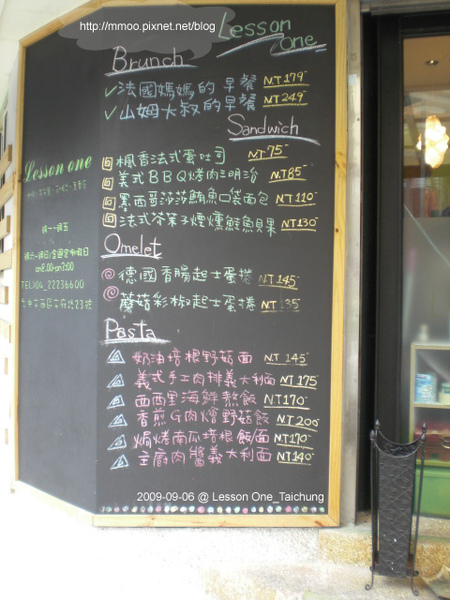 http://mmoo.pixnet.net/blog
Lesson one
Brunch
法國媽媽的早餐 NT179
山姆大叔的早餐 NT249
Sandwich
楓香法式蛋吐司 NT75
美式BBQ烤肉三明治 NT85
墨西哥莎莎鮪魚口袋面包 NT110
法式芥茉子煙燻鮭魚貝果 NT130
Omelet
德國香腸起士蛋捲 NT145
蘑菇彩椒起士蛋捲 NT135
Pasta
奶油培根野菇面 NT145
義式手工肉排義大利面 NT175
西西里海鮮熬飯 NT170
香煎G肉燴野菇飯 NT200
焗烤南瓜培根飯/面 NT170
主廚肉醬義大利面 NT140
Lesson one
週一~週五
TEL:04_22236600
2009-09-06 @ Lesson One_Taichung